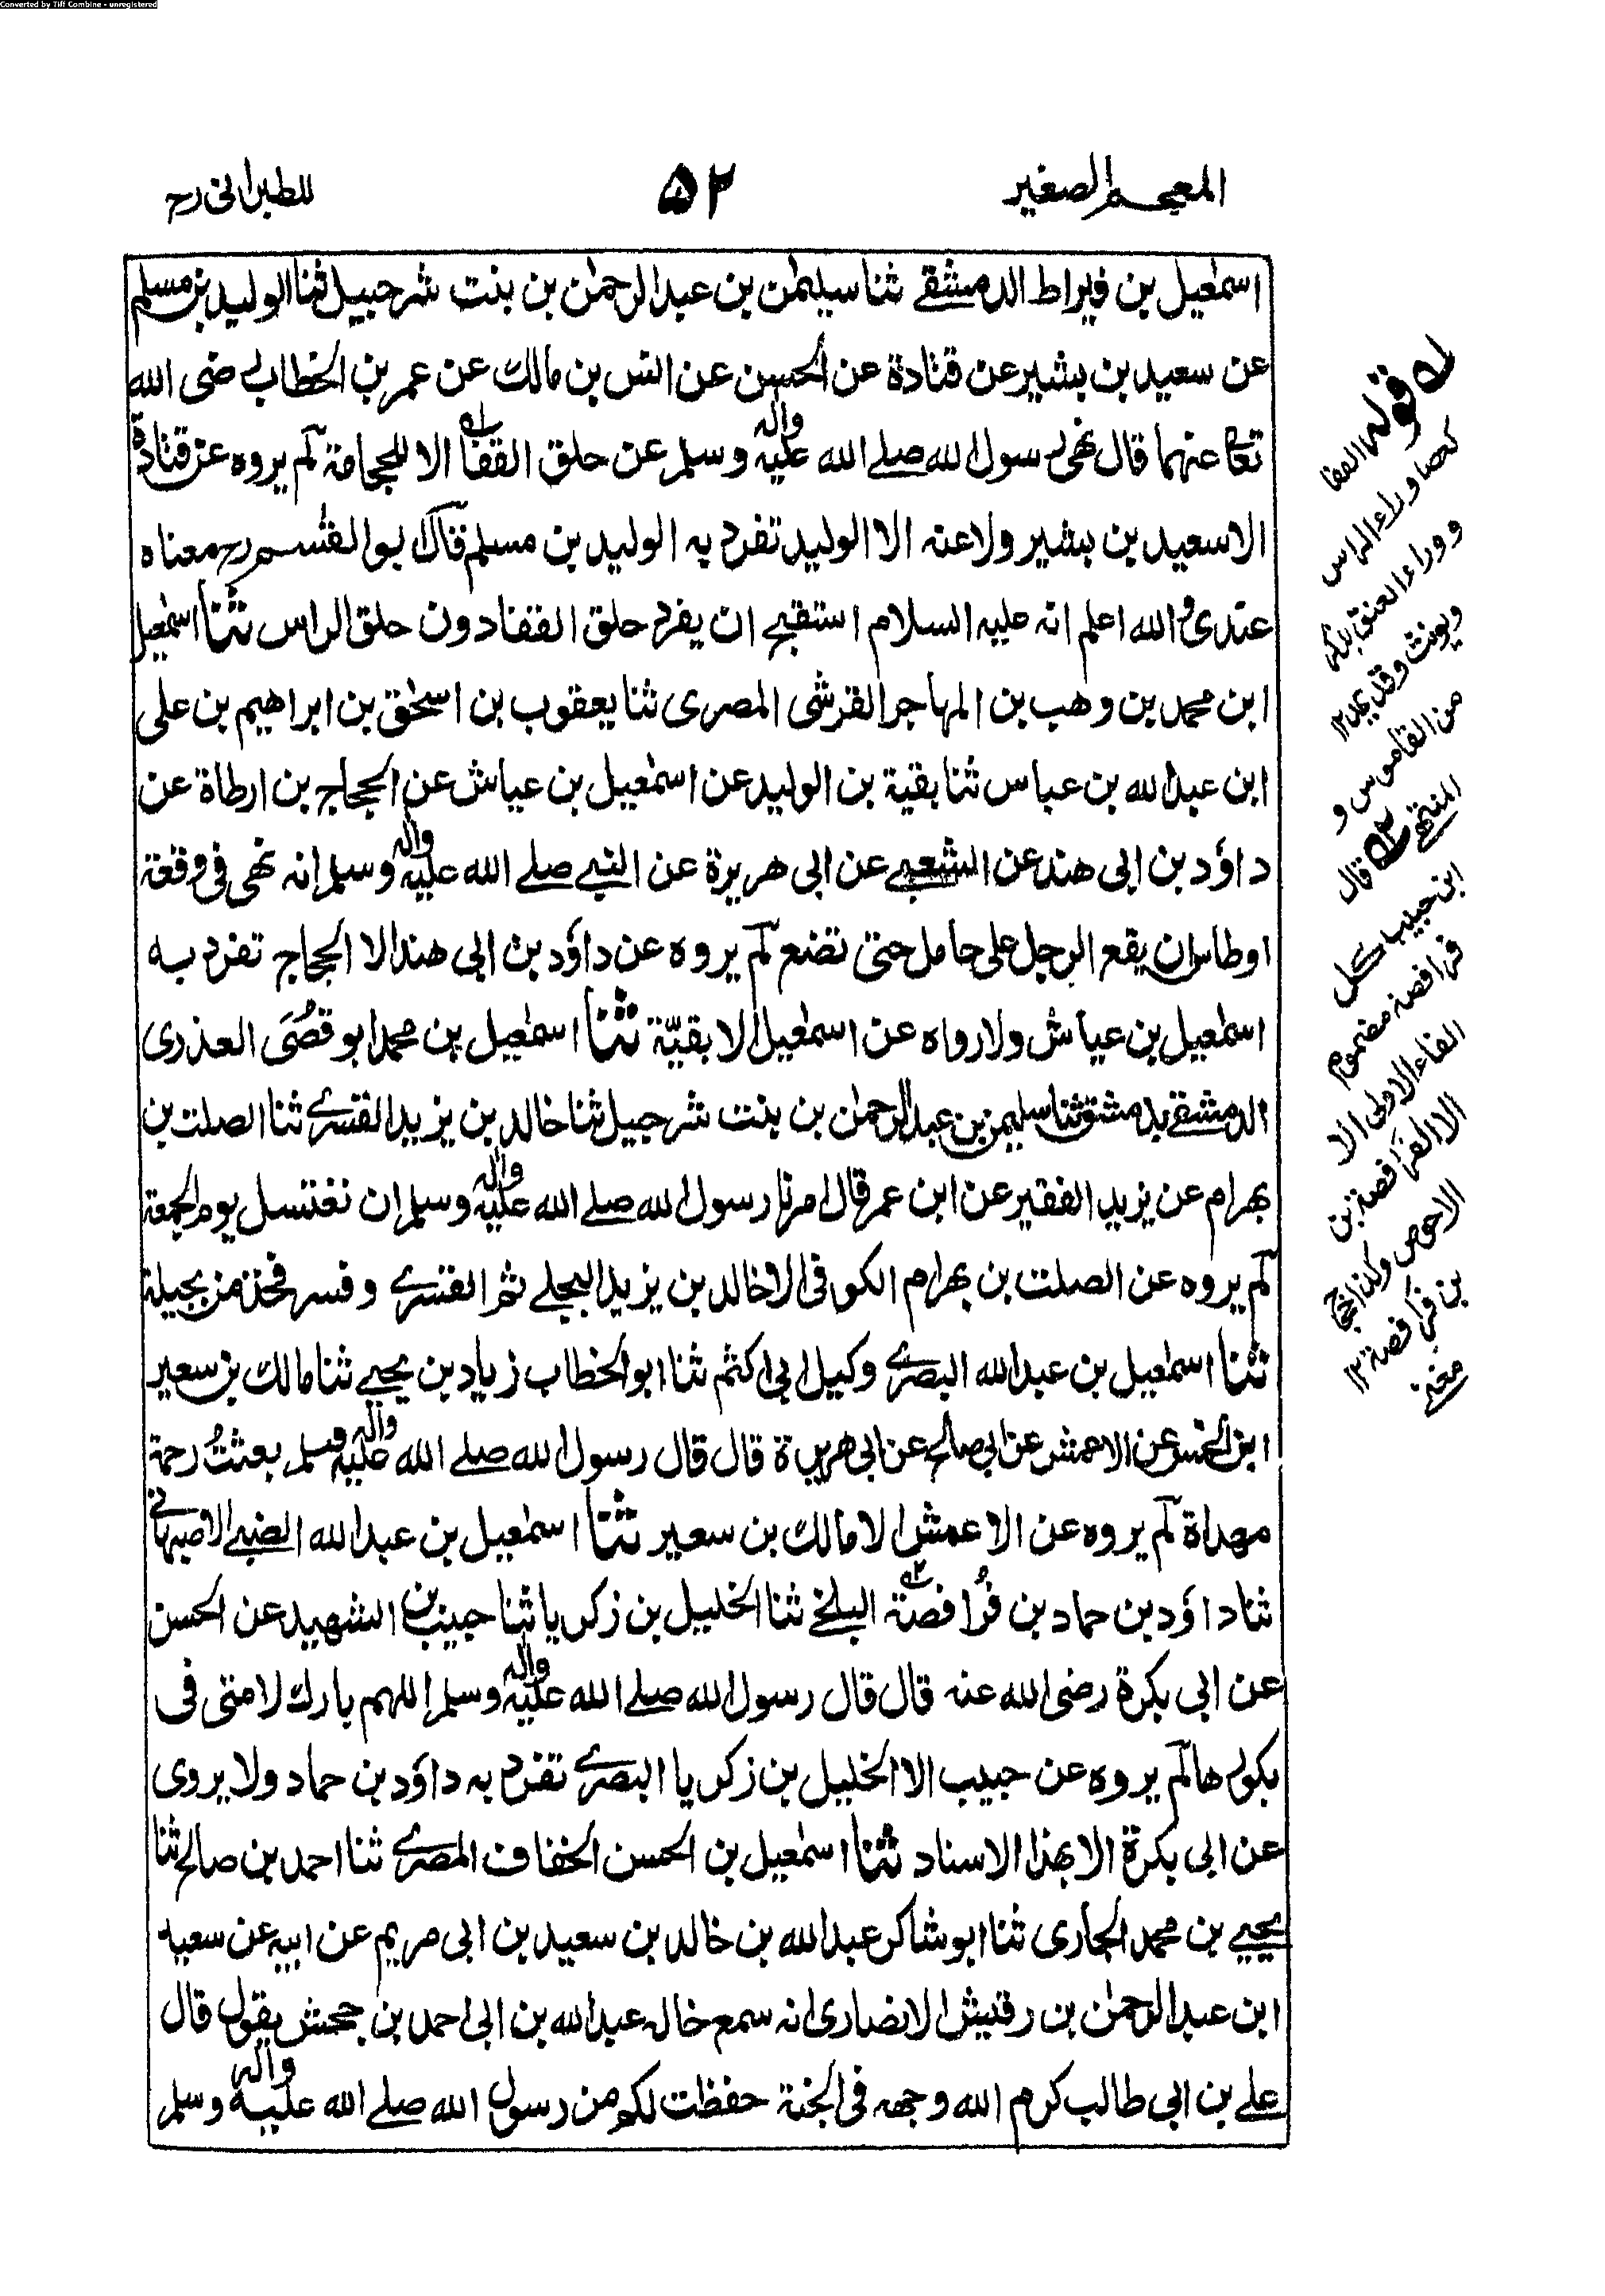 Converted by Tiff Combine - unregistered
المعجم الصغير
۵۲
للطبرانی رح
اسمٰعيل بن قيراط الدمشقے ثنا سليمٰن بن عبد الرحمٰن بن بنت شرحبيل ثنا الوليد بن مسلم
عن سعيد بن بشير عن قتادة عن الحسن عن انس بن مالك عن عمر بن الخطاب رضی الله
تعا عنهما قال نهی رسول الله صلے الله عليه واٰله وسلم عن حلق القفا له الا للحجامة لم يروه عن قتادة
الا سعيد بن بشير ولا عنه الا الوليد تفرد به الوليد بن مسلم قال ابو القٰسم رح معناه
عندی والله اعلم انه عليه السلام استقبح ان يفرد حلق القفا دون حلق الراس ثنا اسمٰعيل
ابن محمد بن وهب بن المهاجر القرشی المصری ثنا يعقوب بن اسحٰق بن ابراهيم بن علی
ابن عبد الله بن عباس ثنا بقية بن الوليد عن اسمٰعيل بن عياش عن الحجاج بن ارطاة عن
داؤد بن ابی هند عن الشعبے عن ابی هريرة عن النبے صلے الله عليه واٰله وسلم انه نهی فی وقعة
اوطاس ان يقع الرجل علی حامل حتی تضع لم يروه عن داؤد بن ابی هند الا الحجاج تفرد به
اسمٰعيل بن عياش ولا رواه عن اسمٰعيل الا بقيّة ثنا اسمٰعيل بن محمد ابو قصَی العذری
الدمشقے بدمشق ثنا سليمٰن بن عبد الرحمٰن بن بنت شرحبيل ثنا خالد بن يزيد القسرے ثنا الصلت بن
بهرام عن يزيد الفقير عن ابن عمر قال امرنا رسول الله صلے الله عليه واٰله وسلم ان نغتسل يوم الجمعة
لم يروه عن الصلت بن بهرام الكوفی الا خالد بن يزيد البجلے ثم القسرے وقسر فخذ من بجيلة
ثنا اسمٰعيل بن عبد الله البصرے وكيل ابی اكثم ثنا ابو الخطاب زياد بن يحيے ثنا مالك بن سعير
ابن الخمس عن الاعمش عن ابی صالح عن ابی هريرة قال قال رسول الله صلے الله عليه واٰله وسلم بعثتُ رحمة
مهداة لم يروه عن الاعمش الا مالك بن سعير ثنا اسمٰعيل بن عبد الله الضبے الاصبهانے
ثنا داؤد بن حماد بن فُرافصة ٢ البلخے ثنا الخليل بن زكريا ثنا حبيب بن الشهيد عن الحسن
عن ابی بكرة رضی الله عنه قال قال رسول الله صلے الله عليه واٰله وسلم اللهم بارك لامتی فی
بكورها لم يروه عن حبيب الا الخليل بن زكريا البصرے تفرد به داؤد بن حماد ولا يروی
عن ابی بكرة الا بهذا الاسناد ثنا اسمٰعيل بن الحسن الخفاف المصرے ثنا احمد بن صالح ثنا
يحيے بن محمد الجاری ثنا ابو شاكر عبد الله بن خالد بن سعيد بن ابی مريم عن ابيه عن سعيد
ابن عبد الرحمٰن بن رقيش الانصاری انه سمع خاله عبد الله بن ابی احمد بن جحش يقول قال
علے بن ابی طالب كرم الله وجهه فی الجنة حفظت لكم من رسول الله صلے الله عليه واٰله وسلم
له قوله القفا
كعصا وراء الراس
و وراء العنق يذكر
ويؤنث وقد يمد ۱۲
من القاموس و
المنتهی ٢ قال
ابن حبيب كل
فرافصة مضموم
الفاء الاولی الا
الا الفَرافصة بن
الاحوص وكذا حجاج
بن فَرافصة ۱۲
مغنے